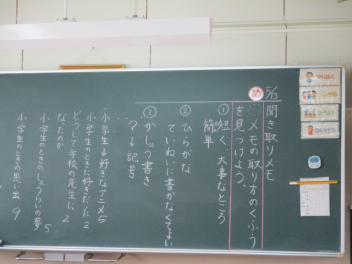 5/21 聞き取りメモ
め メモの取り方のくふう
を見つけよう。
① 短く、大事なところ
簡単
② ひらがな
ていねいに書かなくてよい
③ かじょう書き
?→記号
・小学生の好きなアニメ 5
小学生のとき好きだった 2
どうして学校の先生に 2
なったのか
小学生のときのしょうらいの夢 5
小学生のときの思い出 9